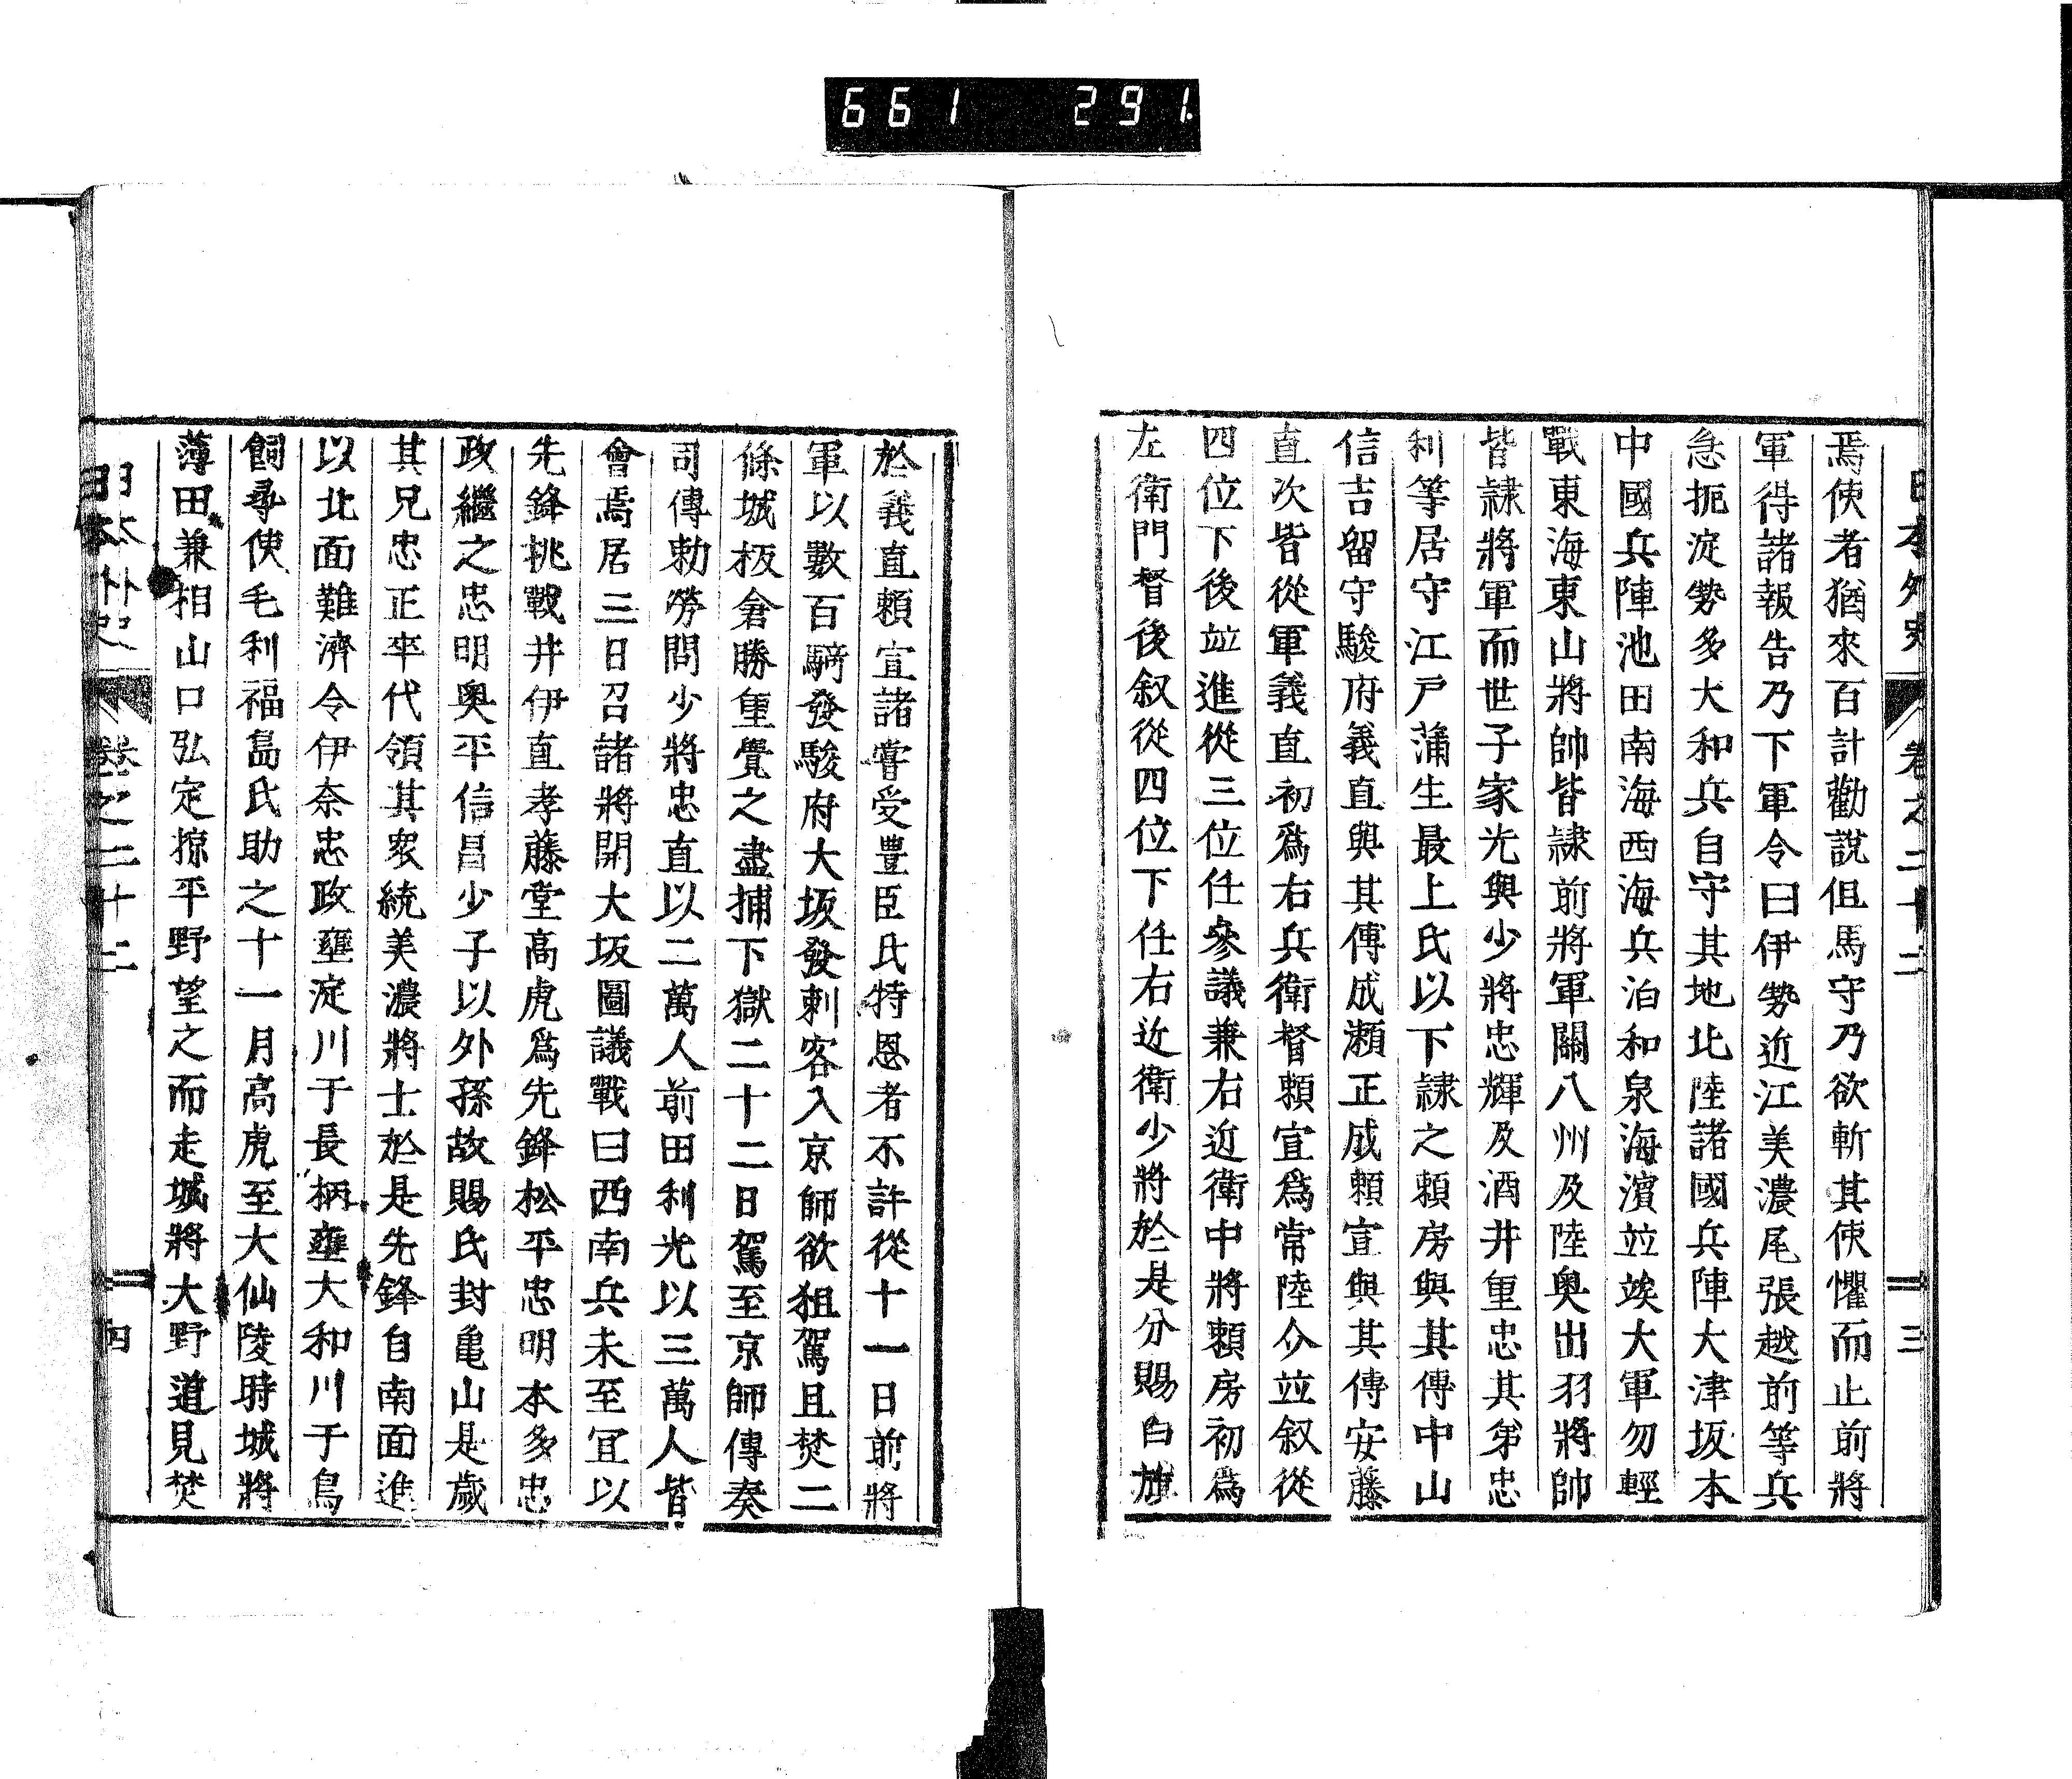 661 291
日本外史 卷之二十二 三
焉使者猶來百計勸說但馬守乃欲斬其使懼而止前將
軍得諸報告乃下軍令曰伊勢近江美濃尾張越前等兵
急扼淀勢多大和兵自守其地北陸諸國兵陣大津坂本
中國兵陣池田南海西海兵泊和泉海濱竝竢大軍勿輕
戰東海東山將帥皆隷前將軍關八州及陸奧出羽將帥
皆隷將軍而世子家光與少將忠輝及酒井重忠其第忠
利等居守江戶蒲生最上氏以下隷之賴房與其傳中山
信吉留守駿府義直與其傳成瀨正成賴宣與其傳安藤
直次皆從軍義直初爲右兵衛督賴宣爲常陸介竝叙從
四位下後竝進從三位任參議兼右近衛中將賴房初爲
左衛門督後叙從四位下任右近衛少將於是分賜白旗
於義直賴宣諸嘗受豊臣氏特恩者不許從十一日前將
軍以數百騎發駿府大坂發刺客入京師欲狙駕且焚二
條城板倉勝重覺之盡捕下獄二十二日駕至京師傳奏
司傳勅勞問少將忠直以二萬人前田利光以三萬人皆
會焉居三日召諸將開大坂圖議戰曰西南兵未至宜以
先鋒挑戰井伊直孝藤堂高虎爲先鋒松平忠明本多忠
政繼之忠明奧平信昌少子以外孫故賜氏封亀山是歲
其兄忠正卒代領其衆統美濃將士於是先鋒自南面進
以北面難濟令伊奈忠政壅淀川于長柄壅大和川于鳥
飼尋使毛利福島氏助之十一月高虎至大仙陵時城將
薄田兼相山口弘定掠平野望之而走城將大野道見焚
日本外史 卷之二十二 四